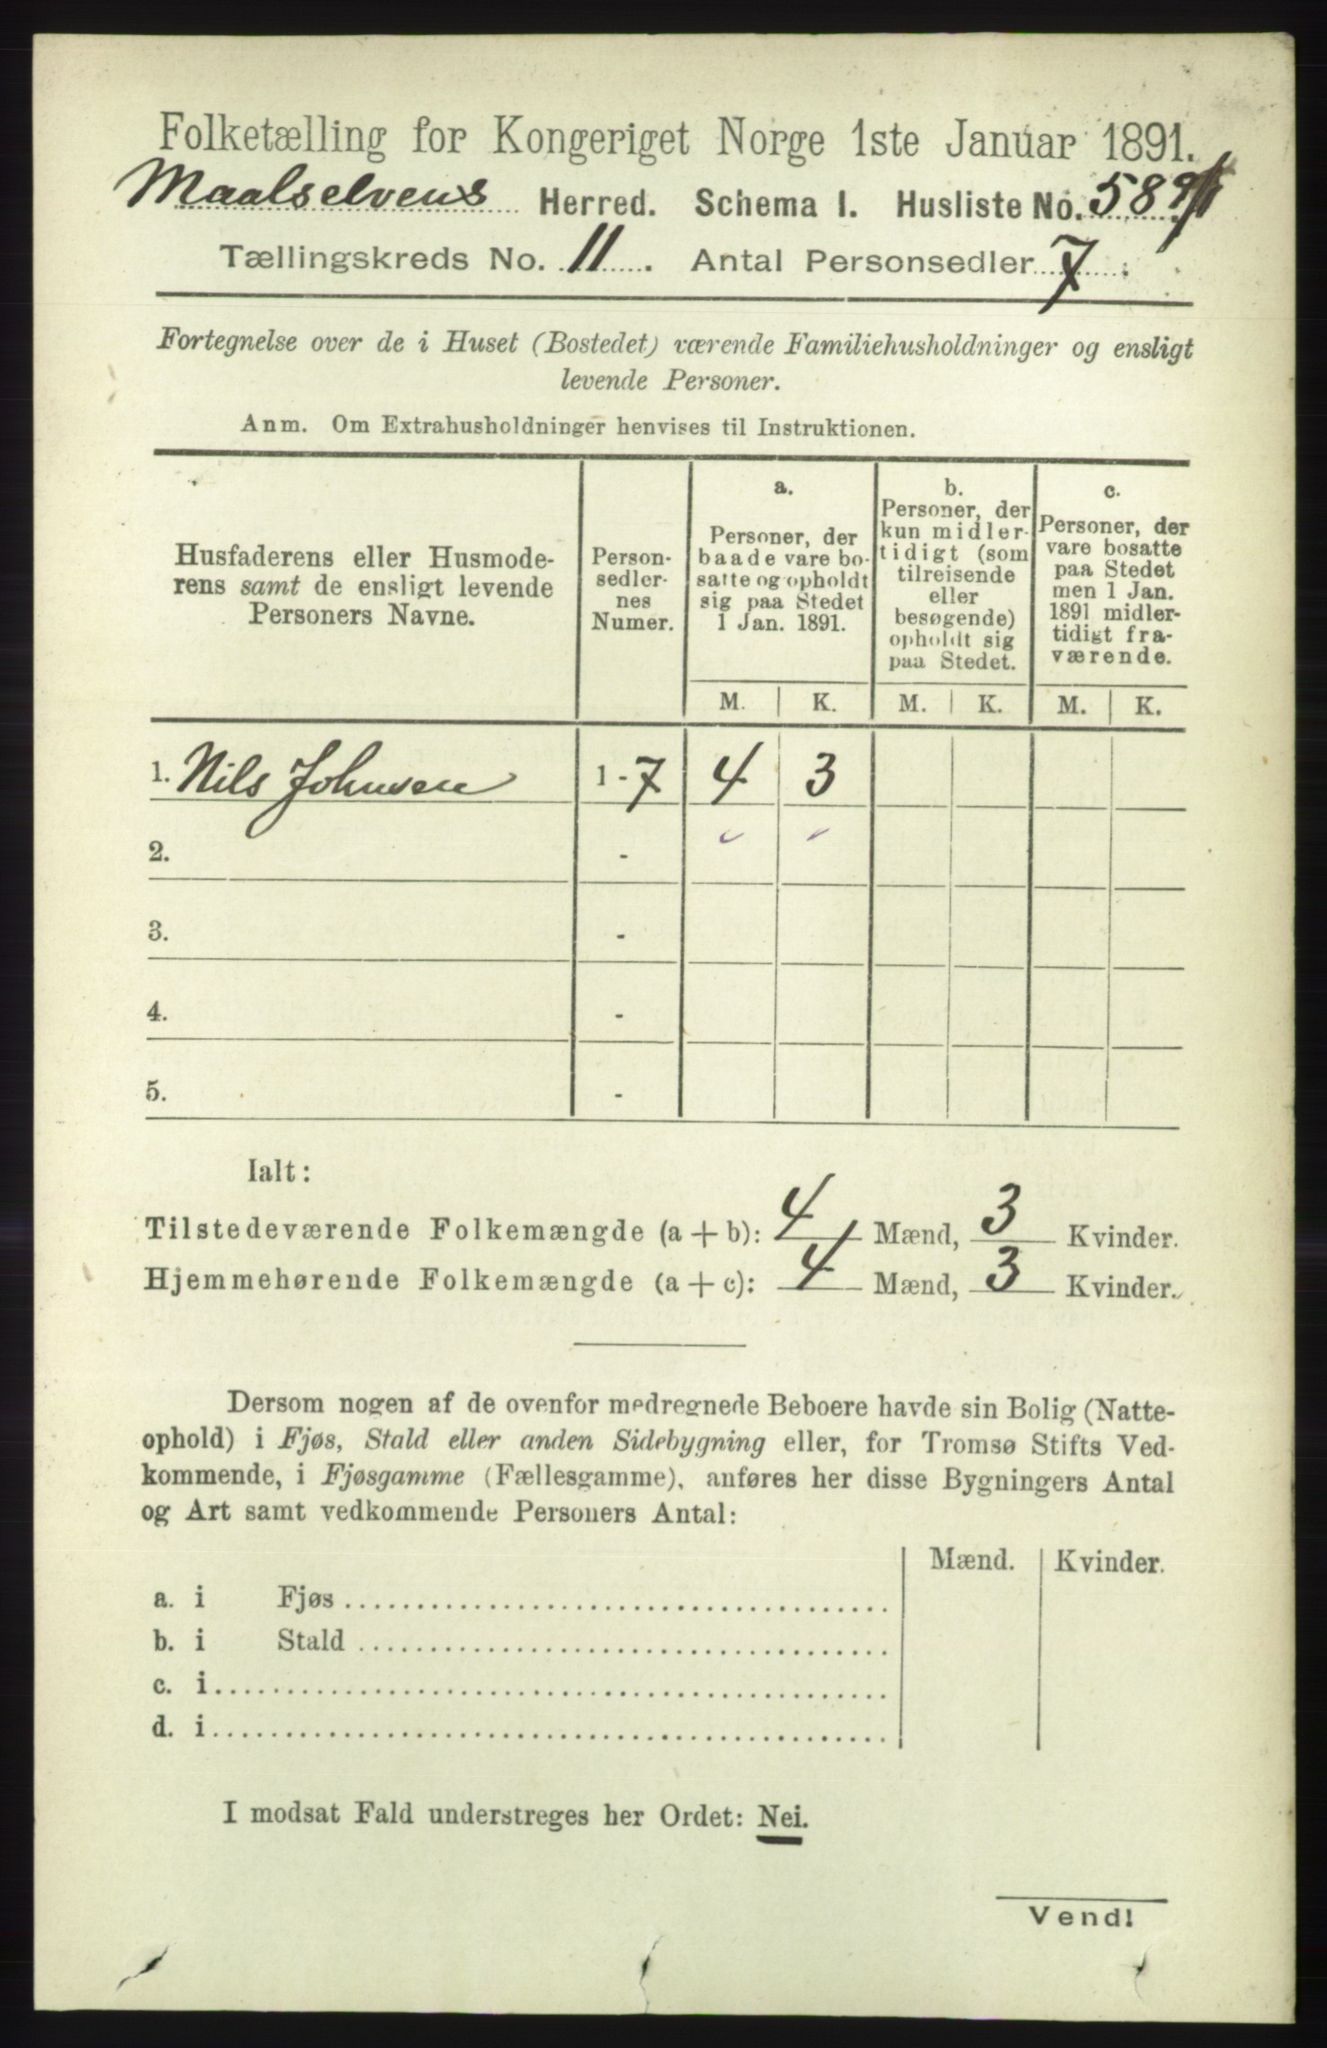 Folketælling for Kongeriget Norge 1ste Januar 1891.
Maalselvens Herred. Schema I. Husliste No. 589
Tællingskreds No. 11. Antal Personsedler 7.
Fortegnelse over de i Huset (Bostedet) værende Familiehusholdninger og ensligt
levende Personer.
Anm. Om Extrahusholdninger henvises til Instruktionen.
Husfaderens eller Husmode-
rens samt de ensligt levende
Personers Navne.
Person-
sedler-
nes
Numer.
a.
Personer, der
baade vare bo-
satte og opholdt
sig paa Stedet
1 Jan. 1891.
b.
Personer, der
kun midler-
tidigt (som
tilreisende
eller
besøgende)
opholdt sig
paa Stedet.
c.
Personer, der
vare bosatte
paa Stedet
men 1 Jan.
1891 midler-
tidigt fra-
værende.
M. K. M. K. M. K.
1. Nils Johnsen 1-7 4 3
2. -
3. -
4. -
5. -
Ialt:
Tilstedeværende Folkemængde (a + b): 4 Mænd, 3 Kvinder.
Hjemmehørende Folkemængde (a + c): 4 Mænd, 3 Kvinder.
Dersom nogen af de ovenfor medregnede Beboere havde sin Bolig (Natte-
ophold) i Fjøs, Stald eller anden Sidebygning eller, for Tromsø Stifts Ved-
kommende, i Fjøsgamme (Fællesgamme), anføres her disse Bygningers Antal
og Art samt vedkommende Personers Antal:
Mænd. Kvinder.
a. i Fjøs
b. i Stald
c. i
d. i
I modsat Fald understreges her Ordet: Nei.
Vend!